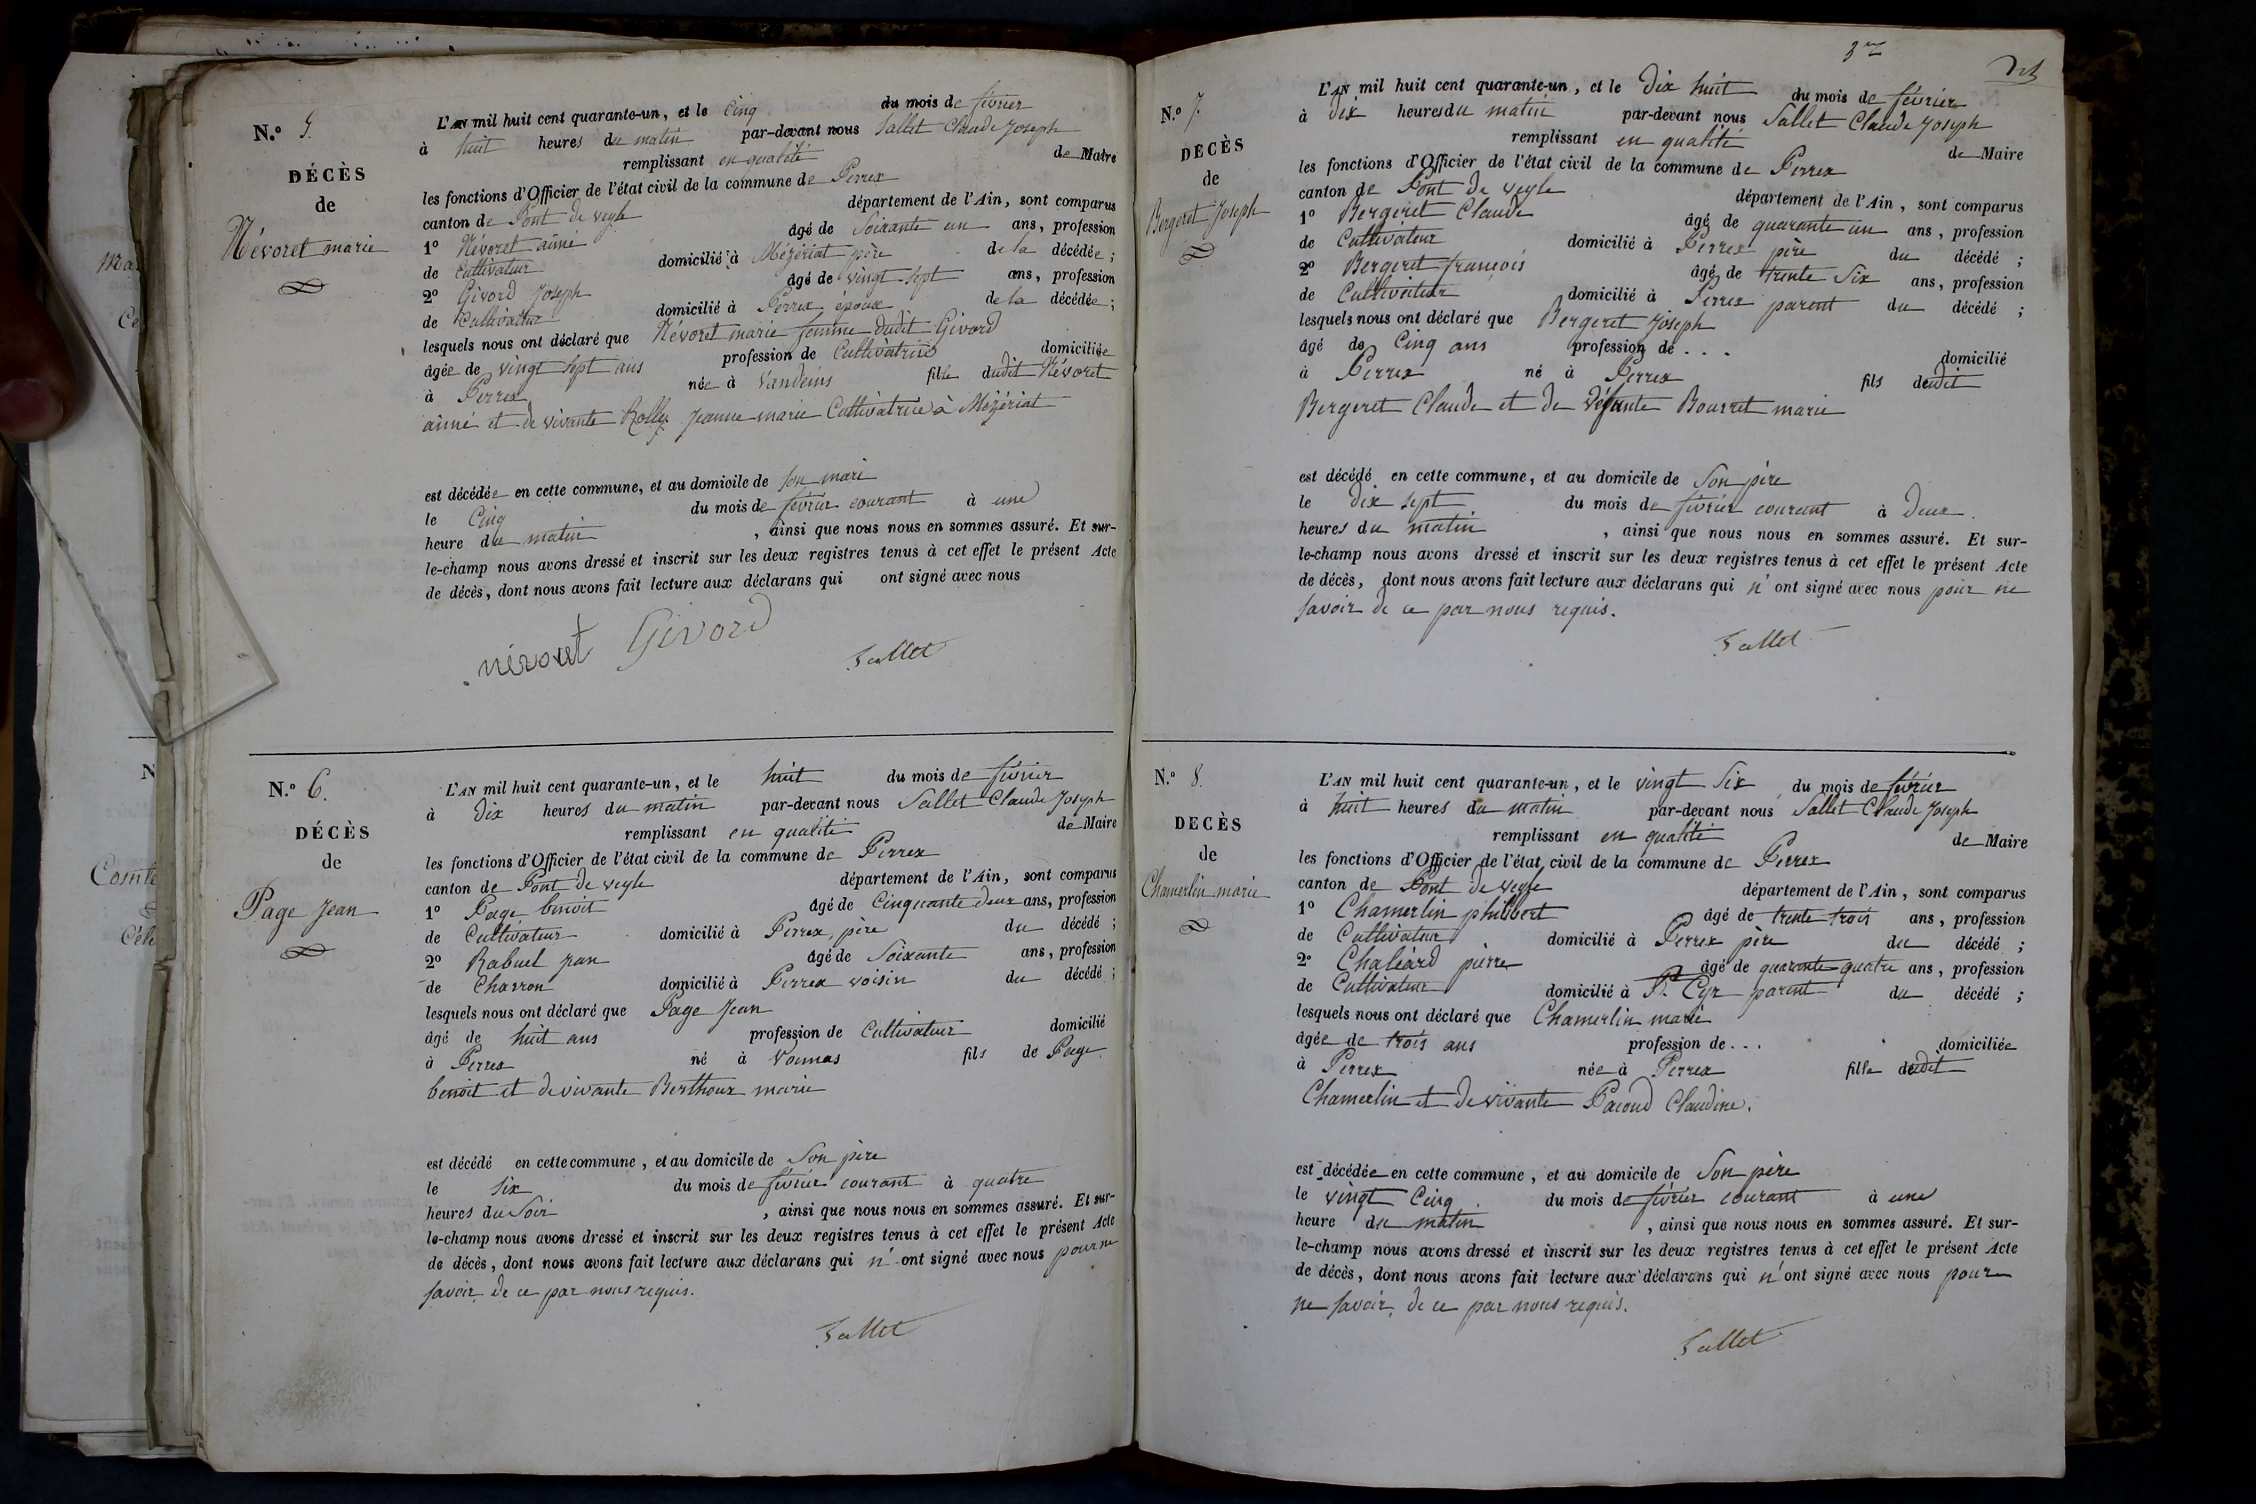 N.o 5.
DÉCÈS
de
Névoret marie
L'AN mil huit cent quarante-un, et le Cinq du mois de février
à huit heures du matin par-devant nous Sallet Claude Joseph
remplissant en qualité de Maire
les fonctions d'Officier de l'état civil de la commune de Perrex
canton de Pont de veyle département de l'Ain, sont comparus
1o Névoret aimé âgé de Soixante un ans, profession
de Cultivateur domicilié à Mézériat père de la décédée ;
2o Givord Joseph âgé de vingt sept ans, profession
de Cultivateur domicilié à Perrex époux de la décédée ;
lesquels nous ont déclaré que Névoret marie femme dudit Givord
âgée de vingt sept ans profession de Cultivatrice domiciliée
à Perrex née à Vandeins fille dudit Névoret
aimé et de vivante Rolly Jeanne marie Cultivatrice à Mézériat
est décédée en cette commune, et au domicile de Son mari
le Cinq du mois de février courant à une
heure du matin , ainsi que nous nous en sommes assuré. Et sur-
le-champ nous avons dressé et inscrit sur les deux registres tenus à cet effet le présent Acte
de décès, dont nous avons fait lecture aux déclarans qui ont signé avec nous
névoret Givord
Sallet
N.o 6.
DÉCÈS
de
Page Jean
L'AN mil huit cent quarante-un, et le huit du mois de février
à Dix heures du matin par-devant nous Sallet Claude Joseph
remplissant en qualité de Maire
les fonctions d'Officier de l'état civil de la commune de Perrex
canton de Pont de veyle département de l'Ain, sont comparus
1o Page benoit âgé de Cinquante deux ans, profession
de Cultivateur domicilié à Perrex, père du décédé ;
2o Rabuel Jean âgé de Soixante ans, profession
de Charron domicilié à Perrex voisin du décédé ;
lesquels nous ont déclaré que Page Jean
âgé de huit ans profession de Cultivateur domicilié
à Perrex né à Vonnas fils de Page
benoit et de vivante Berthoux marie
est décédé en cette commune, et au domicile de Son père
le Six du mois de février courant à quatre
heures du Soir , ainsi que nous nous en sommes assuré. Et sur-
le-champ nous avons dressé et inscrit sur les deux registres tenus à cet effet le présent Acte
de décès, dont nous avons fait lecture aux déclarans qui n' ont signé avec nous pour ne
Savoir, de ce par nous requis.
Sallet
3me
N.o 7.
DÉCÈS
de
Bergeret Joseph
L'AN mil huit cent quarante-un, et le Dix huit du mois de février
à Dix heures du matin par-devant nous Sallet Claude Joseph
remplissant en qualité de Maire
les fonctions d'Officier de l'état civil de la commune de Perrex
canton de Pont de veyle département de l'Ain, sont comparus
1o Bergeret Claude âgé de quarante un ans, profession
de Cultivateur domicilié à Perrex père du décédé ;
2o Bergeret françois âgé de trente Six ans, profession
de Cultivateur domicilié à Perrex parent du décédé ;
lesquels nous ont déclaré que Bergeret Joseph
âgé de Cinq ans profession de . . . domicilié
à Perrex né à Perrex fils dudit
Bergeret Claude et de Défunte Bourret marie
est décédé en cette commune, et au domicile de Son père
le Dix sept du mois de février courant à Deux
heures du matin , ainsi que nous nous en sommes assuré. Et sur-
le-champ nous avons dressé et inscrit sur les deux registres tenus à cet effet le présent Acte
de décès, dont nous avons fait lecture aux déclarans qui n' ont signé avec nous pour ne
Savoir de ce par nous requis.
Sallet
N.o 8.
DECÈS
de
Chamerlin marie
L'AN mil huit cent quarante-un, et le vingt Six du mois de février
à huit heures du matin par-devant nous Sallet Claude Joseph
remplissant en qualité de Maire
les fonctions d'Officier de l'état civil de la commune de Perrex
canton de Pont de veyle département de l'Ain, sont comparus
1o Chamerlin philibert âgé de trente trois ans, profession
de Cultivateur domicilié à Perrex père du décédé ;
2o Chaléard pierre âgé de quarante quatre ans, profession
de Cultivateur domicilié à St. Cyr parent du décédé ;
lesquels nous ont déclaré que Chamerlin marie
âgée de trois ans profession de . . . domiciliée
à Perrex née à Perrex fille dudit
Chamerlin et de vivante Pacoud Claudine.
est décédée en cette commune, et au domicile de Son père
le vingt Cinq du mois de février courant à une
heure du matin , ainsi que nous nous en sommes assuré. Et sur-
le-champ nous avons dressé et inscrit sur les deux registres tenus à cet effet le présent Acte
de décès, dont nous avons fait lecture aux déclarans qui n' ont signé avec nous pour
ne Savoir, de ce par nous requis.
Sallet